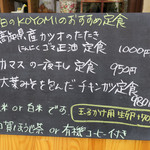 日のKOYOMIのおすすめ定食
高知県産カツオのたたき
にんにくゴマ正油 定食 1000円
カマスの一夜干し定食 950円
大葉みそを包んだチキンカツ定食
980
米 or 白米 です。
玉子かけ用 生卵
ほうじ茶 or 有機コーヒー付き